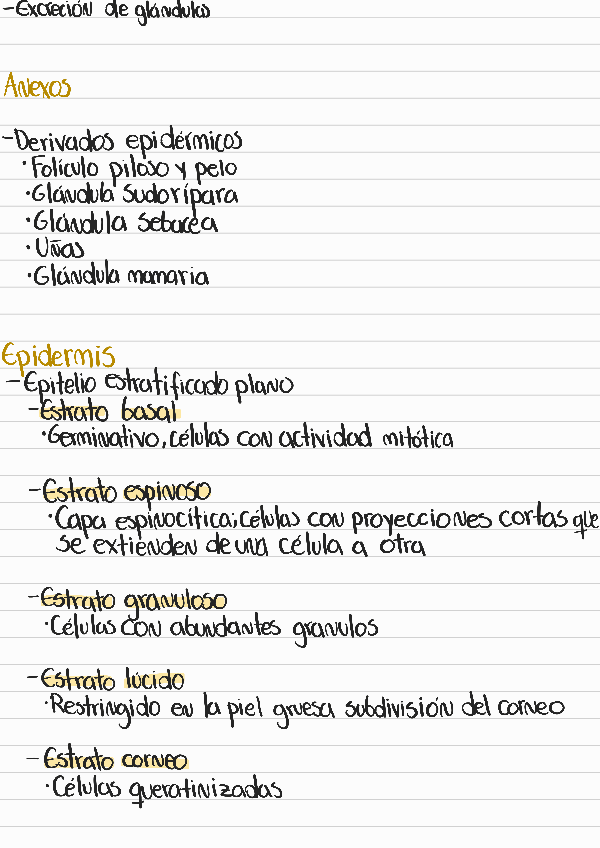 -Excreción de glándulas
Anexos
-Derivados epidérmicos
·Folículo piloso y pelo
·Glándula sudorípara
·Glándula sebacea
·Uñas
·Glándula mamaria
Epidermis
-Epitelio estratificado plano
-Estrato basal
·Germinativo, células con actividad mitótica
-Estrato espinoso
·Capa espinocítica; células con proyecciones cortas que
se extienden de una célula a otra
-Estrato granuloso
·Células con abundantes granulos
-Estrato lúcido
·Restringido en la piel gruesa subdivisión del corneo
-Estrato corneo
·Células queratinizadas